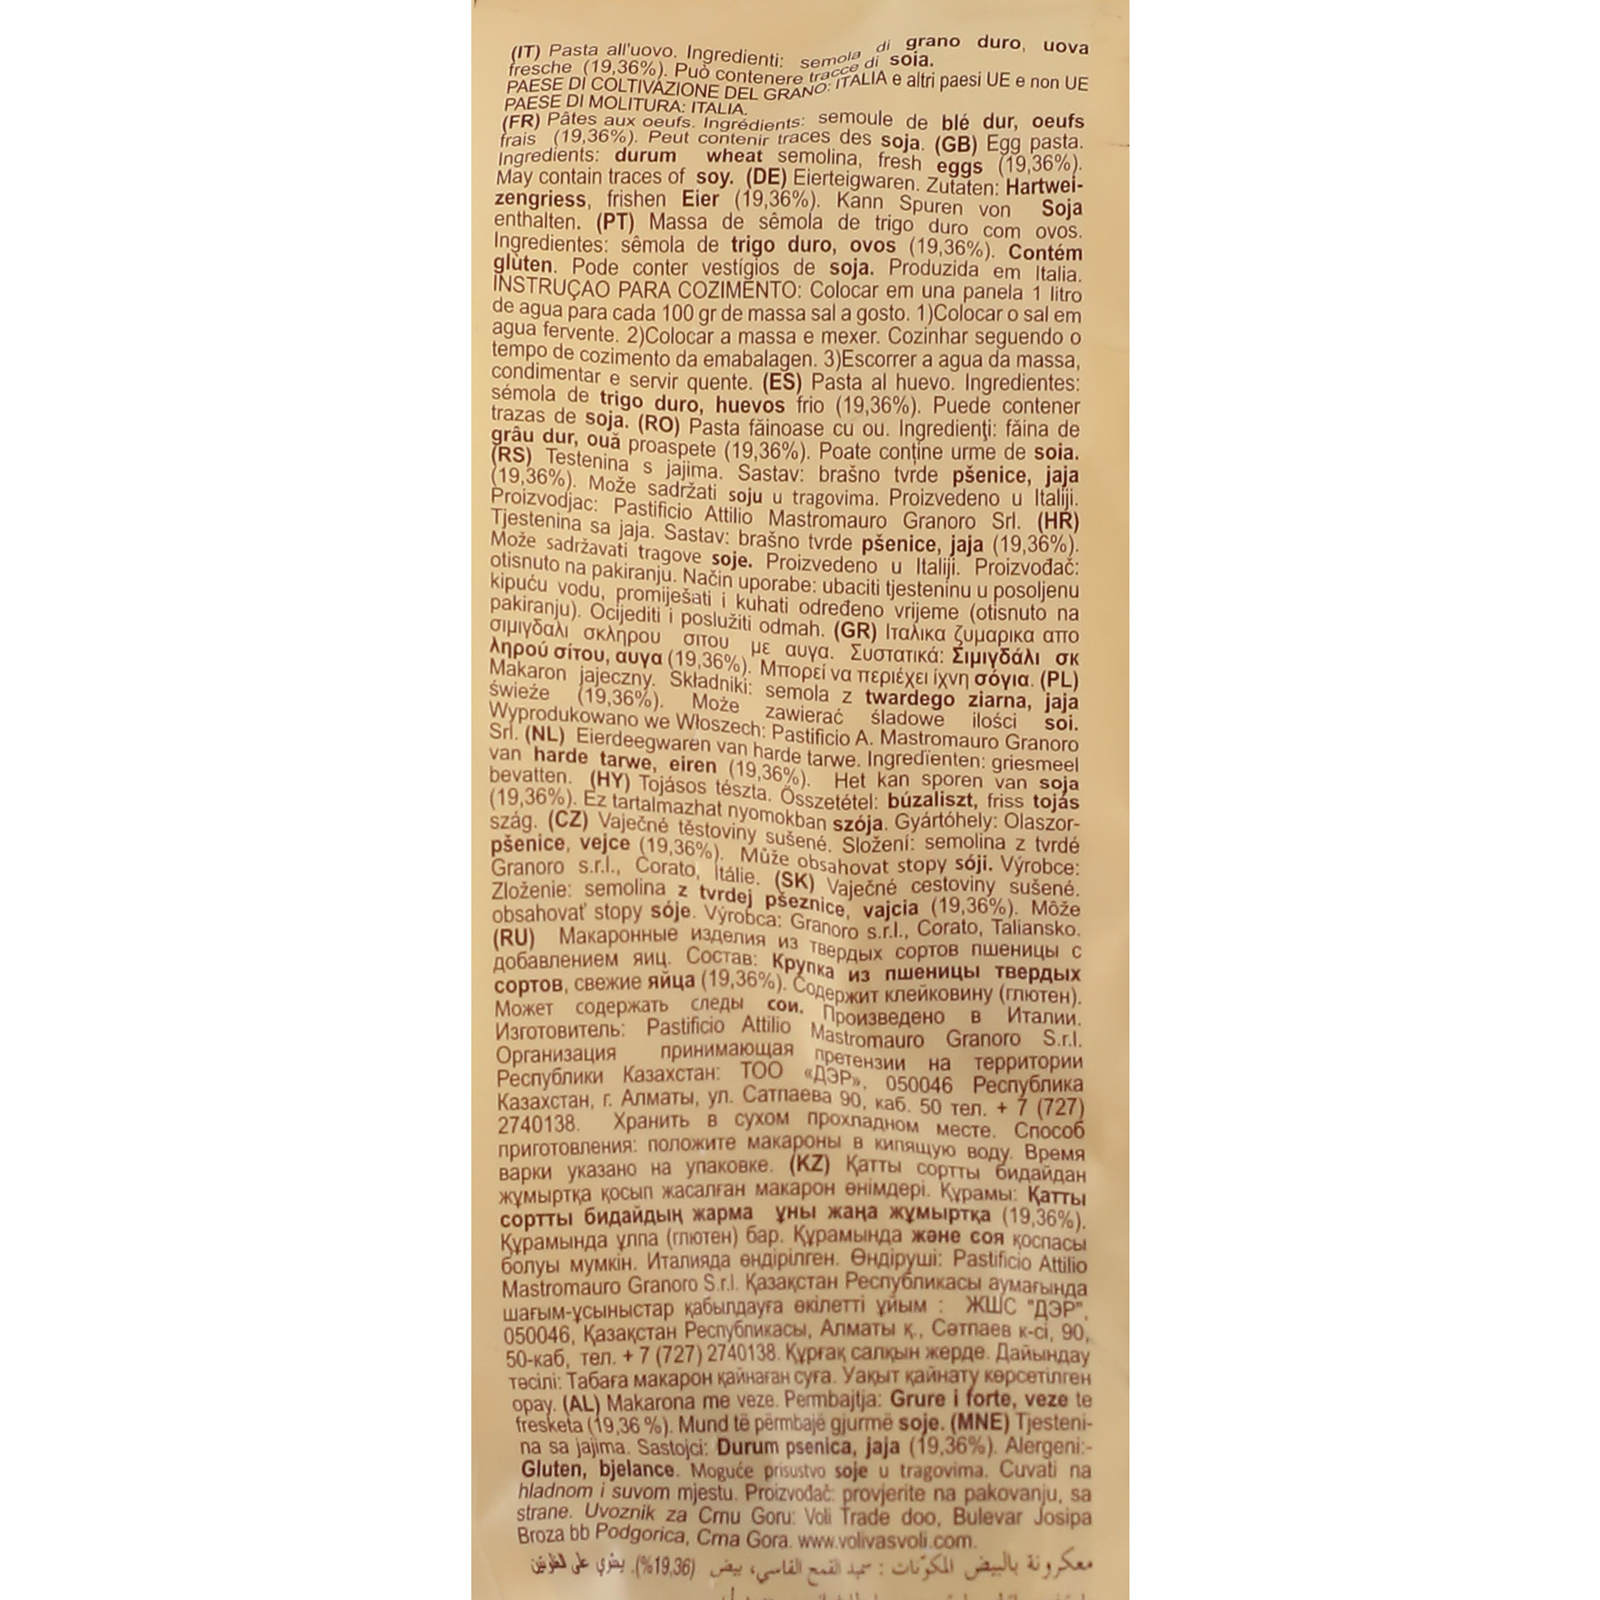 (IT) Pasta all'uovo. Ingredienti: semola di grano duro, uova
fresche (19,36%). Può contenere tracce di soia.
PAESE DI COLTIVAZIONE DEL GRANO: ITALIA e altri paesi UE e non UE
PAESE DI MOLITURA: ITALIA.
(FR) Pâtes aux oeufs. Ingrédients: semoule de blé dur, oeufs
frais (19,36%). Peut contenir traces des soja. (GB) Egg pasta.
Ingredients: durum wheat semolina, fresh eggs (19,36%).
May contain traces of soy. (DE) Eierteigwaren. Zutaten: Hartwei-
zengriess, frishen Eier (19,36%). Kann Spuren von Soja
enthalten. (PT) Massa de sêmola de trigo duro com ovos.
Ingredientes: sêmola de trigo duro, ovos (19,36%). Contém
glùten. Pode conter vestígios de soja. Produzida em Italia.
INSTRUÇAO PARA COZIMENTO: Colocar em una panela 1 litro
de agua para cada 100 gr de massa sal a gosto. 1)Colocar o sal em
agua fervente. 2)Colocar a massa e mexer. Cozinhar seguendo o
tempo de cozimento da emabalagen. 3)Escorrer a agua da massa,
condimentar e servir quente. (ES) Pasta al huevo. Ingredientes:
sémola de trigo duro, huevos frio (19,36%). Puede contener
trazas de soja. (RO) Pasta făinoase cu ou. Ingredienţi: făina de
grâu dur, ouă proaspete (19,36%). Poate conține urme de soia.
(RS) Testenina s jajima. Sastav: brašno tvrde pšenice, jaja
(19,36%). Može sadržati soju u tragovima. Proizvedeno u Italiji.
Proizvodjac: Pastificio Attilio Mastromauro Granoro Srl. (HR)
Tjestenina sa jaja. Sastav: brašno tvrde pšenice, jaja (19,36%).
Može sadržavati tragove soje. Proizvedeno u Italiji. Proizvođač:
otisnuto na pakiranju. Način uporabe: ubaciti tjesteninu u posoljenu
kipuću vodu, promiješati i kuhati određeno vrijeme (otisnuto na
pakiranju). Ocijediti i poslužiti odmah. (GR) Ιταλικα ζυμαρικα απο
σιμιγδαλι σκληρου σιτου με αυγα. Συστατικά: Σιμιγδάλι σκ
ληρού σίτου, αυγα (19,36%). Μπορεί να περιέχει ίχνη σόγια. (PL)
Makaron jajeczny. Składniki: semola z twardego ziarna, jaja
świeże (19,36%). Może zawierać śladowe ilości soi.
Wyprodukowano we Włoszech: Pastificio A. Mastromauro Granoro
Srl. (NL) Eierdeegwaren van harde tarwe. Ingredïenten: griesmeel
van harde tarwe, eiren (19,36%). Het kan sporen van soja
bevatten. (HY) Tojásos tészta. Összetétel: búzaliszt, friss tojás
(19,36%). Ez tartalmazhat nyomokban szója. Gyártóhely: Olaszor-
szág. (CZ) Vaječné těstoviny sušené. Složení: semolina z tvrdé
pšenice, vejce (19,36%). Může obsahovat stopy sóji. Výrobce:
Granoro s.r.l., Corato, Itálie. (SK) Vaječné cestoviny sušené.
Zloženie: semolina z tvrdej pšeznice, vajcia (19,36%). Môže
obsahovať stopy sóje. Výrobca: Granoro s.r.l., Corato, Taliansko.
(RU) Макаронные изделия из твердых сортов пшеницы с
добавлением яиц. Состав: Крупка из пшеницы твердых
сортов, свежие яйца (19,36%). Содержит клейковину (глютен).
Может содержать следы сои. Произведено в Италии.
Изготовитель: Pastificio Attilio Mastromauro Granoro S.r.l.
Организация принимающая претензии на территории
Республики Казахстан: ТОО «ДЭР», 050046 Республика
Казахстан, г. Алматы, ул. Сатпаева 90, каб. 50 тел. + 7 (727)
2740138. Хранить в сухом прохладном месте. Способ
приготовления: положите макароны в кипящую воду. Время
варки указано на упаковке. (KZ) Қатты сортты бидайдан
жұмыртқа қосып жасалған макарон өнімдері. Құрамы: Қатты
сортты бидайдың жарма ұны жаңа жұмыртқа (19,36%).
Құрамында ұлпа (глютен) бар. Құрамында және соя қоспасы
болуы мумкін. Италияда өндірілген. Өндіруші: Pastificio Attilio
Mastromauro Granoro S.r.l. Қазақстан Республикасы аумағында
шағым-ұсыныстар қабылдауға өкілетті ұйым : ЖШС "ДЭР",
050046, Қазақстан Республикасы, Алматы қ., Сәтпаев к-сі, 90,
50-каб, тел. + 7 (727) 2740138. Құрғақ салқын жерде. Дайындау
тәсілі: Табаға макарон қайнаған суға. Уақыт қайнату көрсетілген
орау. (AL) Makarona me veze. Permbajtja: Grure i forte, veze te
fresketa (19,36 %). Mund të përmbajë gjurmë soje. (MNE) Tjesteni-
na sa jajima. Sastojci: Durum psenica, jaja (19,36%). Alergeni:-
Gluten, bjelance. Moguće prisustvo soje u tragovima. Cuvati na
hladnom i suvom mjestu. Proizvođač: provjerite na pakovanju, sa
strane. Uvoznik za Crnu Goru: Voli Trade doo, Bulevar Josipa
Broza bb Podgorica, Crna Gora. www.volivasvoli.com.
معكرونة بالبيض المكونات : سميد القمح القاسي، بيض (19,36%). يحتوي على الغلوتين